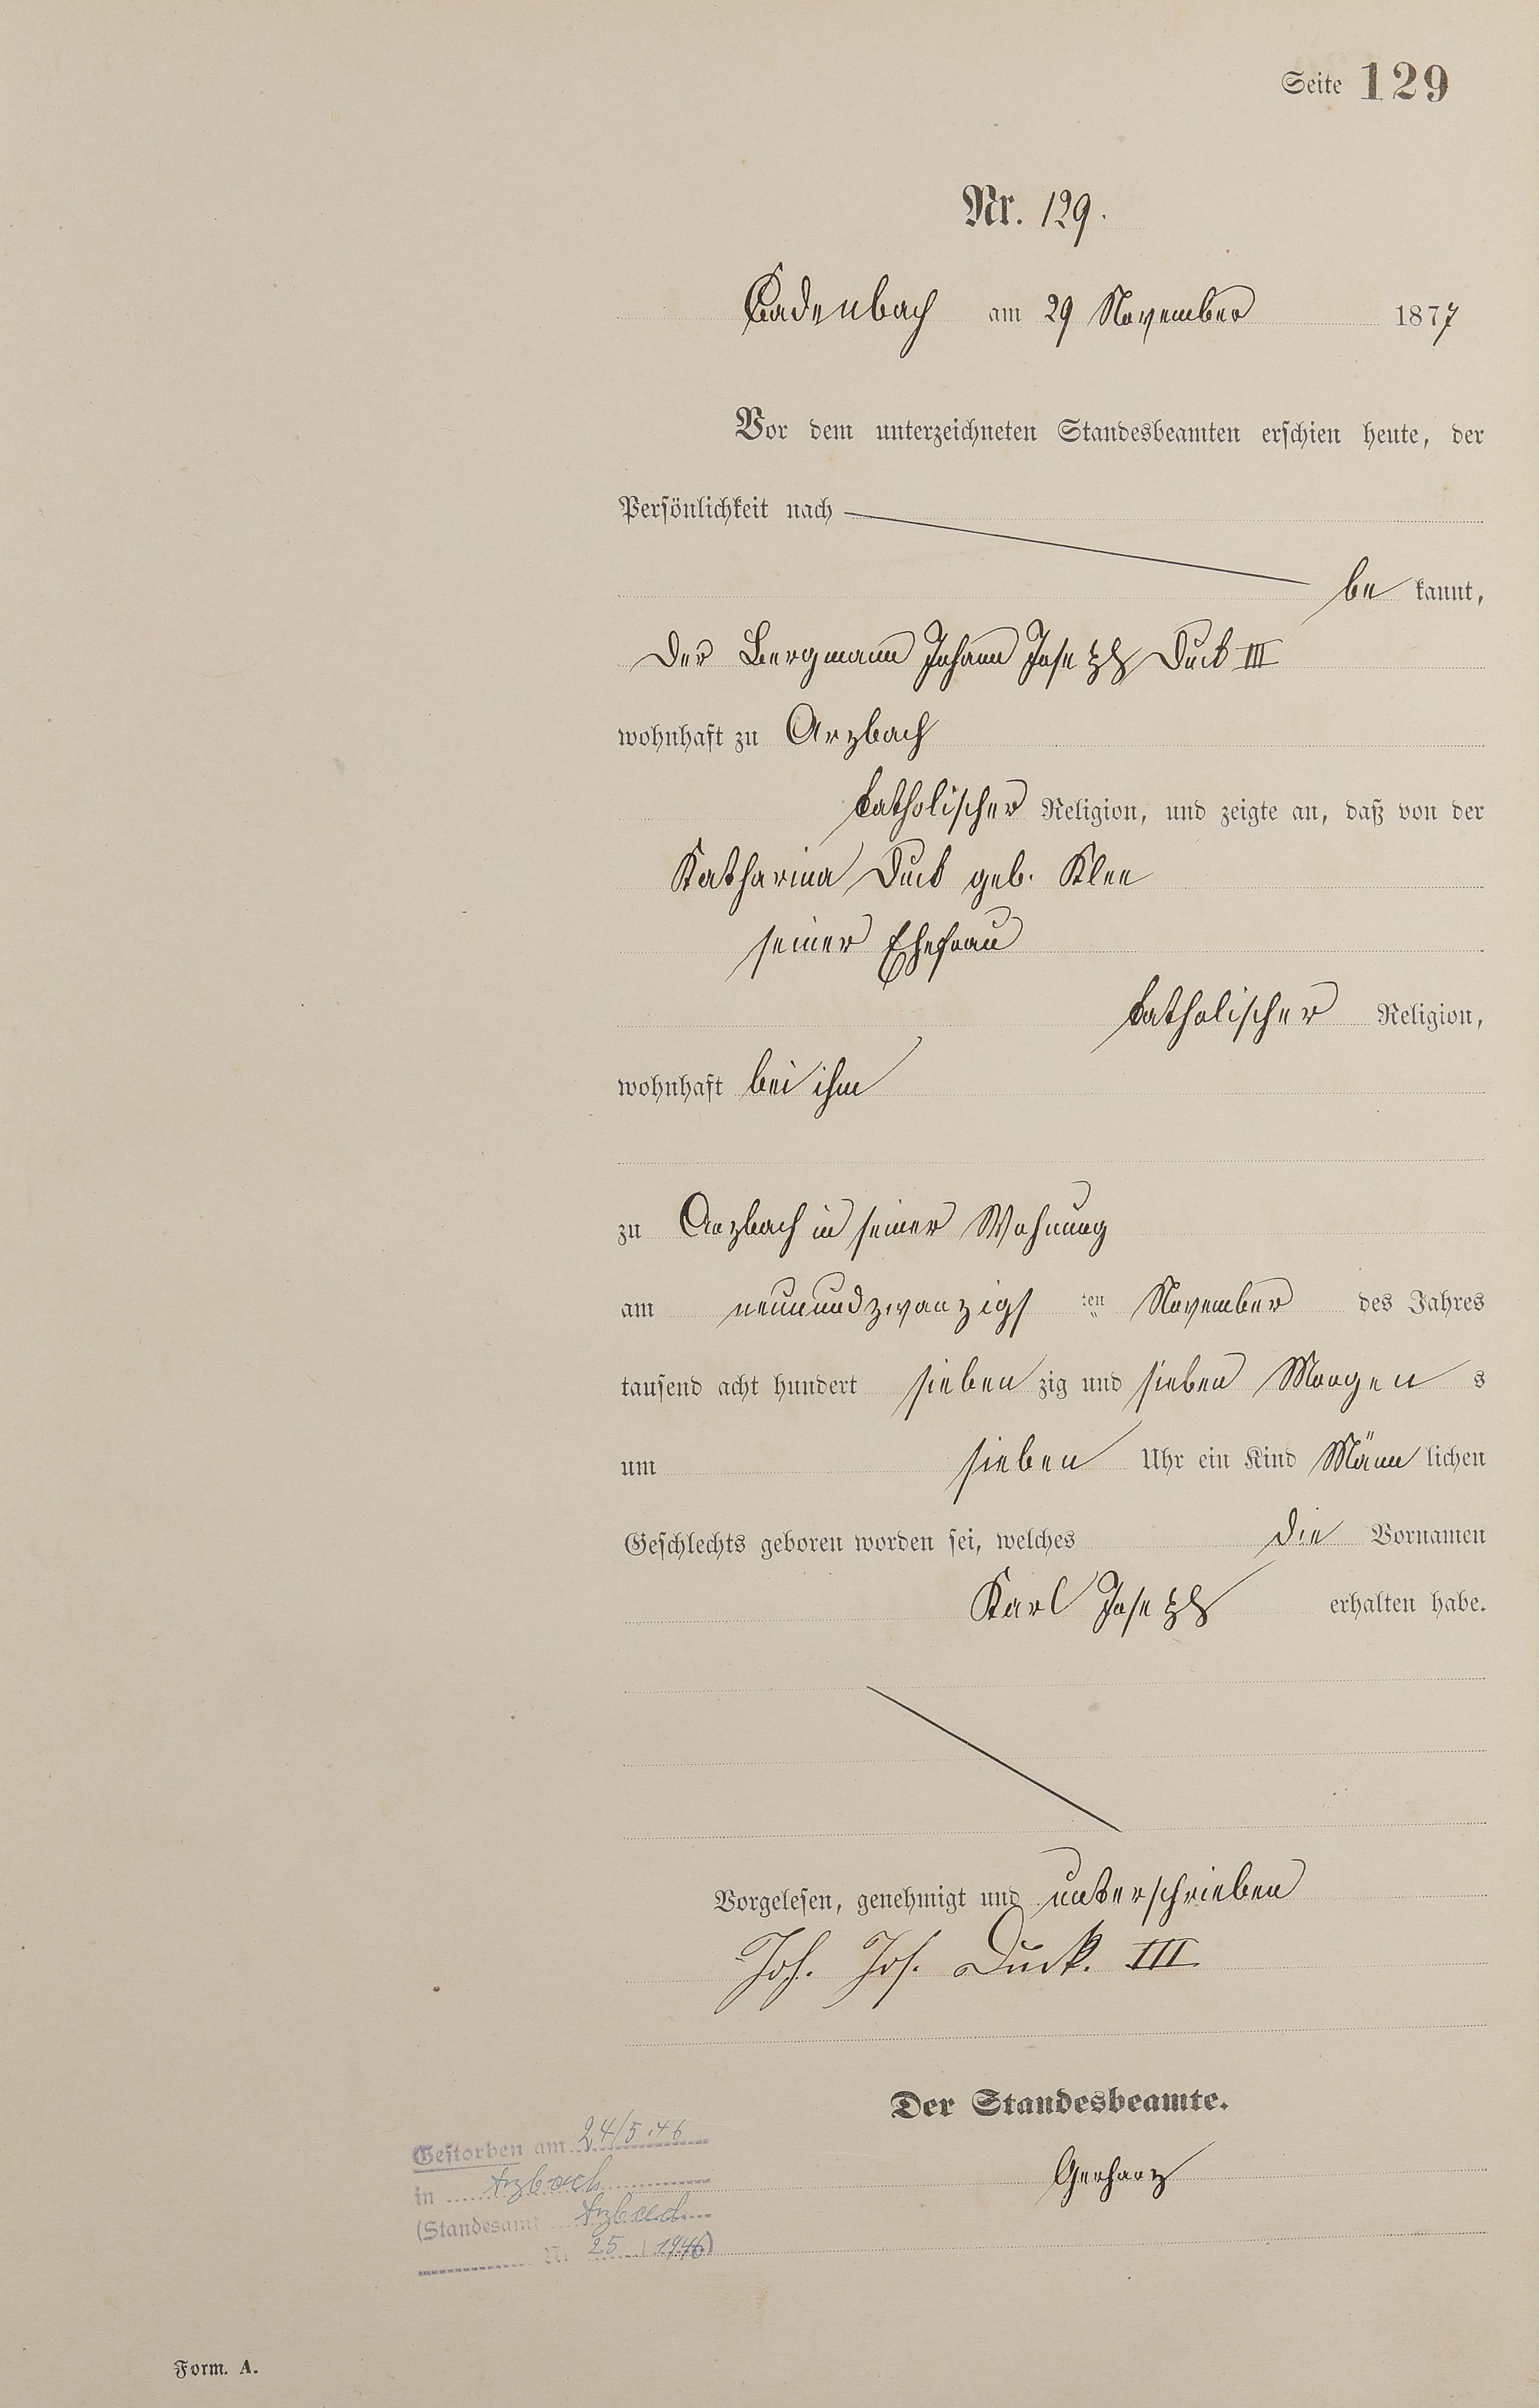 Seite 129
Nr. 129.
Cadenbach am 29 November 1877
Vor dem unterzeichneten Standesbeamten erschien heute, der
Persönlichkeit nach
be kannt,
der Bergmann Johann Joseph Duck III
wohnhaft zu Arzbach
katholischer Religion, und zeigte an, daß von der
Katharina Duck geb. Klee
seiner Ehefrau
katholischer Religion,
wohnhaft bei ihm
zu Arzbach in seiner Wohnung
am neunundzwanzigs ten November des Jahres
tausend acht hundert sieben zig und sieben Morgen s
um sieben Uhr ein Kind Männ lichen
Geschlechts geboren worden sei, welches die Vornamen
Karl Joseph erhalten habe.
Vorgelesen, genehmigt und unterschrieben
Joh. Jos. Duck. III
Der Standesbeamte.
Gerharz
Gestorben am 24/5.46
in Arzbach
(Standesamt Arzbach
Nr 25 / 1946)
Form. A.